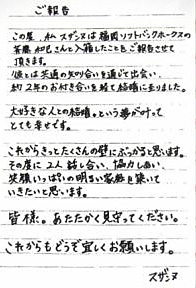 ご報告
この度、私 スザンヌは 福岡ソフトバンクホークスの
斉藤 和巳さんと入籍したことをご報告させて
頂きます。
彼とは共通の知り合いを通じて出会い、
約2年のお付き合いを経て結婚に至りました。
大好きな人との結婚。という夢が叶って
とても幸せです。
これからきっとたくさんの壁にぶつかると思います。
その度に 2人 話し合い、協力しあい
笑顔いっぱいの明るい家庭を築いて
いきたいと思います。
皆様。あたたかく見守ってください。
これからもどうぞ宜しくお願いします。
スザンヌ